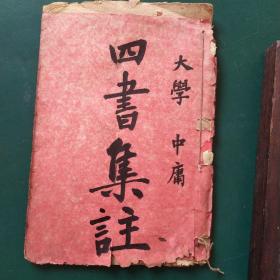 大學 中庸
四書集註